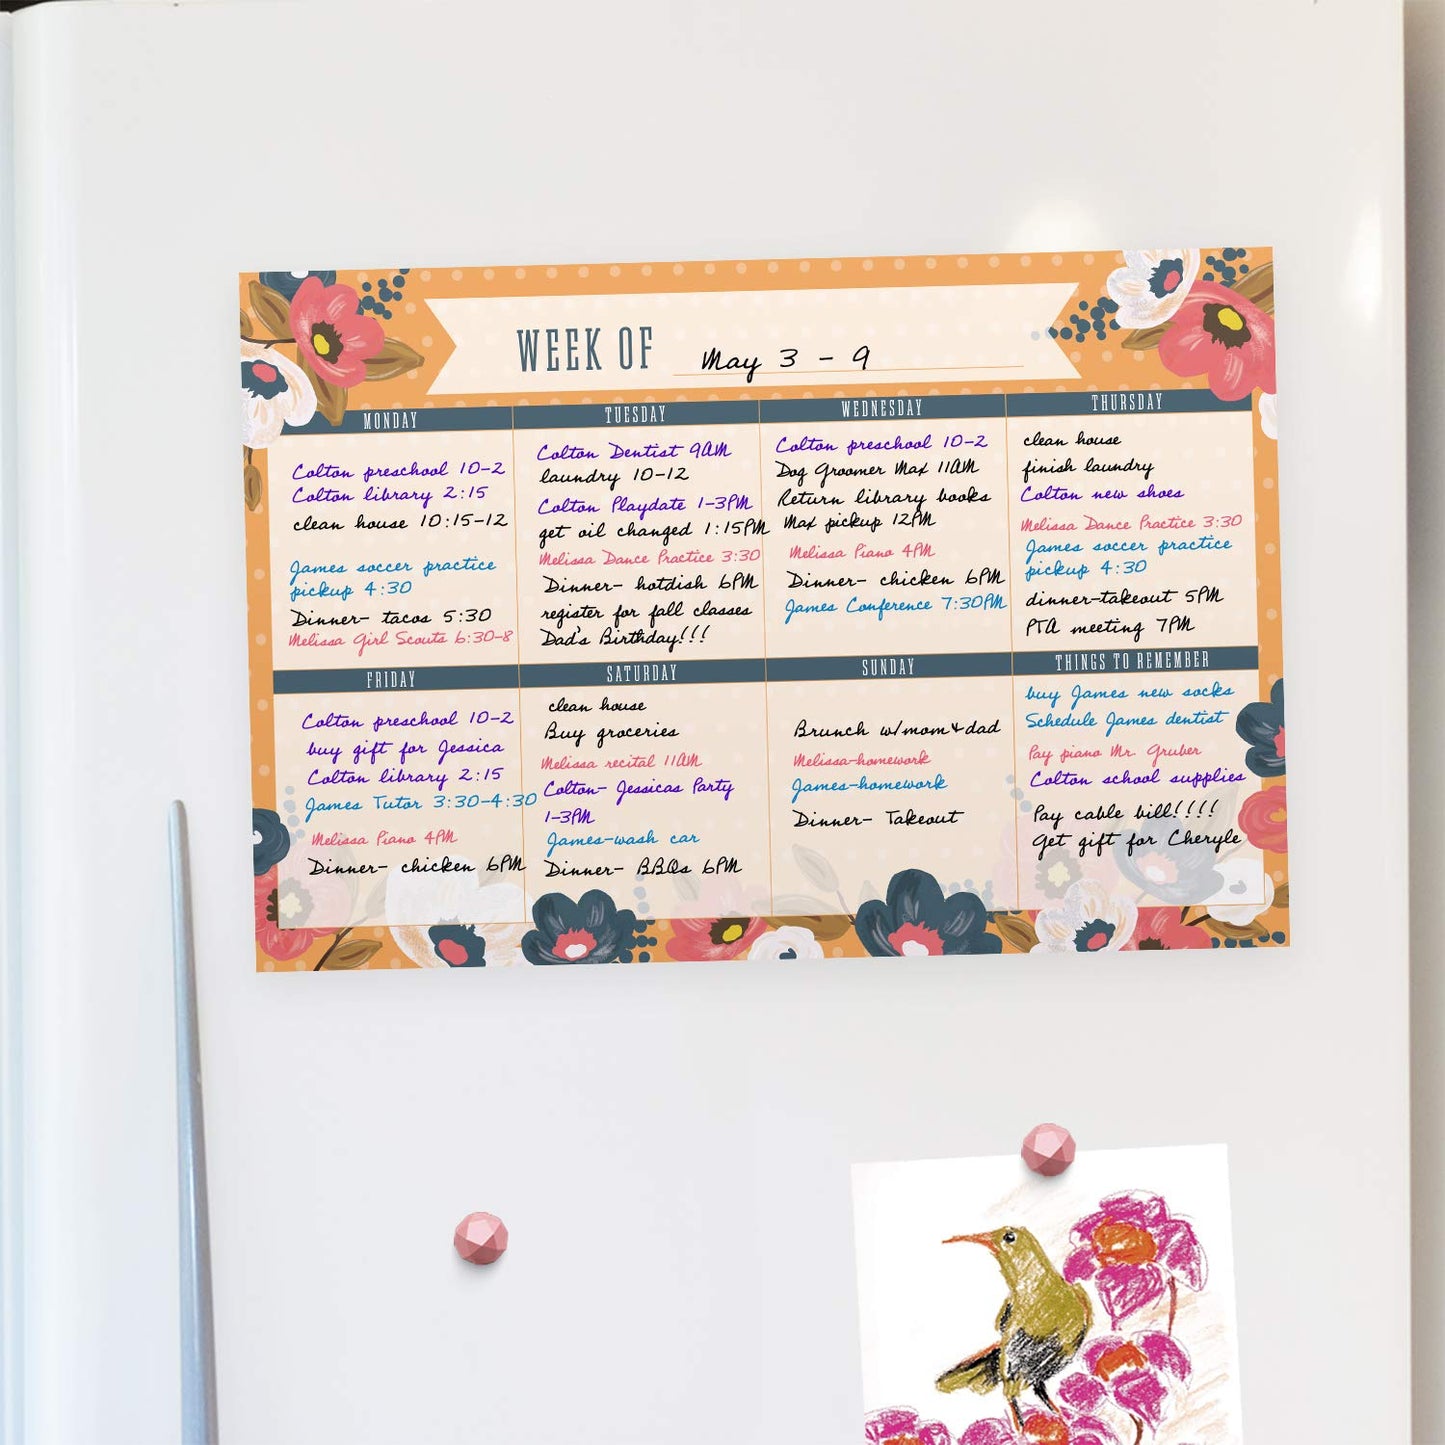 WEEK OF May 3 - 9
MONDAY
Colton preschool 10-2
Colton library 2:15
clean house 10:15-12
James soccer practice
pickup 4:30
Dinner- tacos 5:30
Melissa Girl Scouts 6:30-8
TUESDAY
Colton Dentist 9AM
laundry 10-12
Colton Playdate 1-3PM
get oil changed 1:15PM
Melissa Dance Practice 3:30
Dinner- hotdish 6PM
register for fall classes
Dad's Birthday!!!
WEDNESDAY
Colton preschool 10-2
Dog Groomer Max 11AM
Return library books
Max pickup 12PM
Melissa Piano 4PM
Dinner- chicken 6PM
James Conference 7:30PM
THURSDAY
clean house
finish laundry
Colton new shoes
Melissa Dance Practice 3:30
James soccer practice
pickup 4:30
dinner-takeout 5PM
PTA meeting 7PM
FRIDAY
Colton preschool 10-2
buy gift for Jessica
Colton library 2:15
James Tutor 3:30-4:30
Melissa Piano 4PM
Dinner- chicken 6PM
SATURDAY
clean house
Buy groceries
Melissa recital 11AM
Colton- Jessicas Party
1-3PM
James-wash car
Dinner- BBQs 6PM
SUNDAY
Brunch w/mom & dad
Melissa-homework
James-homework
Dinner- Takeout
THINGS TO REMEMBER
buy James new socks
Schedule James dentist
Pay piano Mr. Gruber
Colton school supplies
Pay cable bill!!!!
Get gift for Cheryle